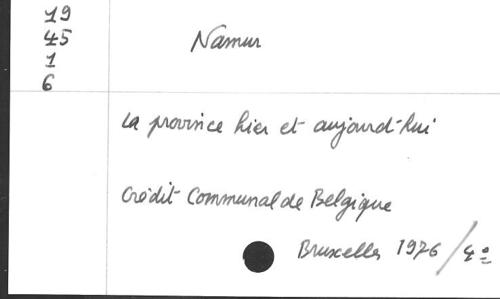 19
45
1
6
Namur
La province hier et aujourd'hui
Crédit Communal de Belgique
Bruxelles 1976 / 4º